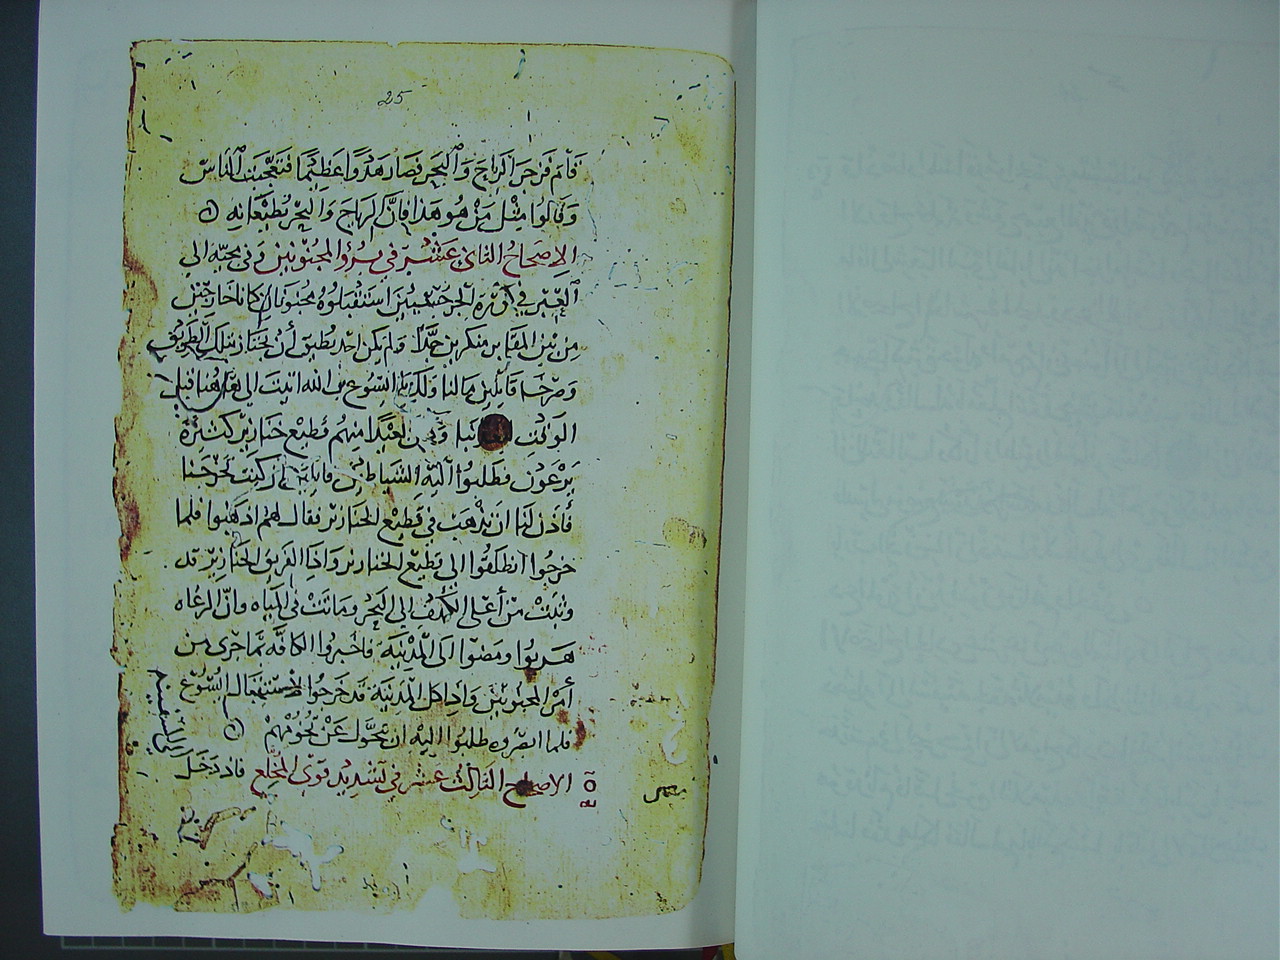 25
قام فزجر الرياح والبحر فصار هدوا عظيما فتعجبت الناس
وقالوا مثل من هو هذا فان الرياح والبحر تطيعانه
الاصحاح الثاني عشر في برؤ المجنونين وفي مجيه الى
العبر في كورة الجرجسيين استقبلوه مجنونان كانا خارجين
من بين المقابر منكرين جدا ولم يكن احد يطيق أن يجتاز بتلك الطريق
وصرخا قايلين ما لنا ولك يا ايسوع بن الله اتيت الى هاهنا قبل
الوقت لعذابنا وكان بعيدا منهم قطيع خنازير كثيرة
يرعون فطلبوا اليه الشياطين قايلين ان كنت تخرجنا
فأذن لنا ان نذهب في قطيع الخنازير فقال لهم اذهبوا فلما
خرجوا انطلقوا الى قطيع الخنازير واذا الفريق الخنازير قد
وثبت من أعلى الكهف الى البحر وماتت في المياه وان الرعاه
هربوا ومضوا الى المدينة فاخبروا الكافة بما جرى من
أمر المجنونين واذا كل المدينة قد خرجوا لاستقبال ايسوع
فلما ابصروه طلبوا اليه ان يتحول عن تخومهم
الاصحاح الثالث عشر في تشديد قوى المخلع فاذ دخل